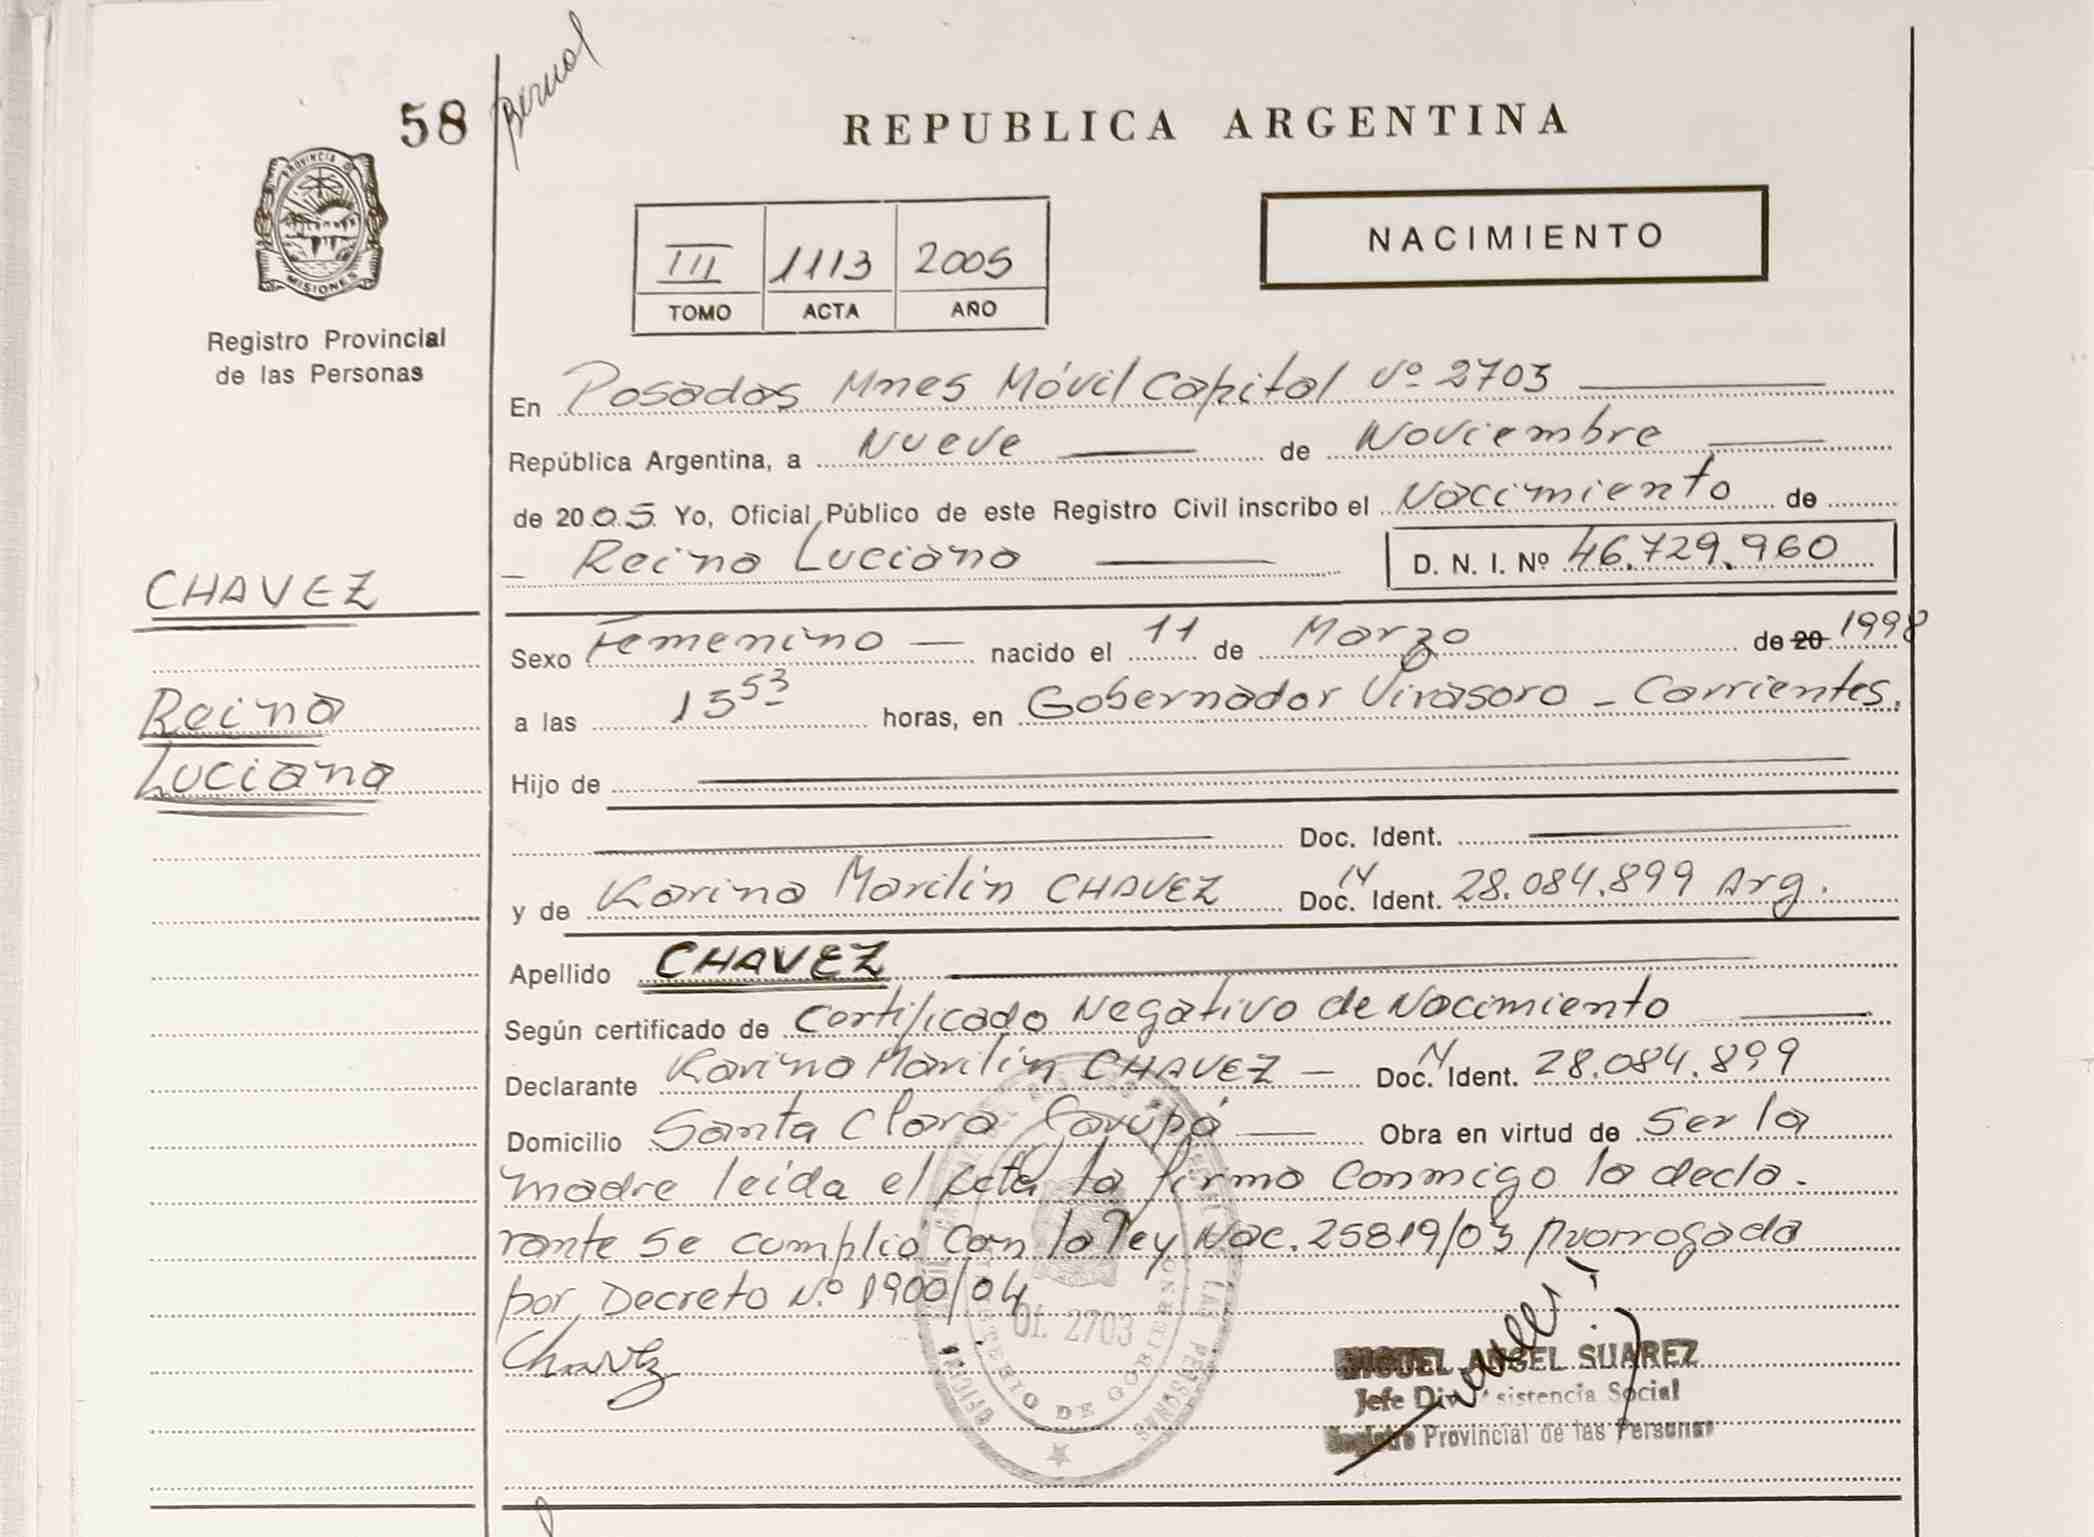 58
Bernal
REPUBLICA ARGENTINA
PROVINCIA DE
MISIONES
Registro Provincial
de las Personas
III 1113 2005
TOMO ACTA AÑO
NACIMIENTO
En Posadas Mnes Móvil Capital Nº 2703
República Argentina, a Nueve de Noviembre
de 2005 Yo, Oficial Público de este Registro Civil inscribo el Nacimiento de
Reina Luciana D. N. I. Nº 46.729.960
CHAVEZ
Reina
Luciana
Sexo Femenino nacido el 11 de Marzo de 20 1998
a las 15 53 horas, en Gobernador Virasoro - Corrientes.
Hijo de
Doc. Ident.
y de Karina Marilin CHAVEZ Doc. N Ident. 28.084.899 Arg.
Apellido CHAVEZ
Según certificado de Certificado Negativo de Nacimiento
Declarante Karina Marilín CHAVEZ - Doc. N Ident. 28.084.899
Domicilio Santa Clara Garupá Obra en virtud de Ser la
madre leída el Acta la firma conmigo la decla.
rante se cumplio con la Ley Nac. 25819/03 Prorrogada
por Decreto Nº 1900/04
Chavez
Of. 2703
MINISTERIO DE GOBIERNO
MIGUEL ANGEL SUAREZ
Jefe Div. sistencia Social
Registro Provincial de las Personas